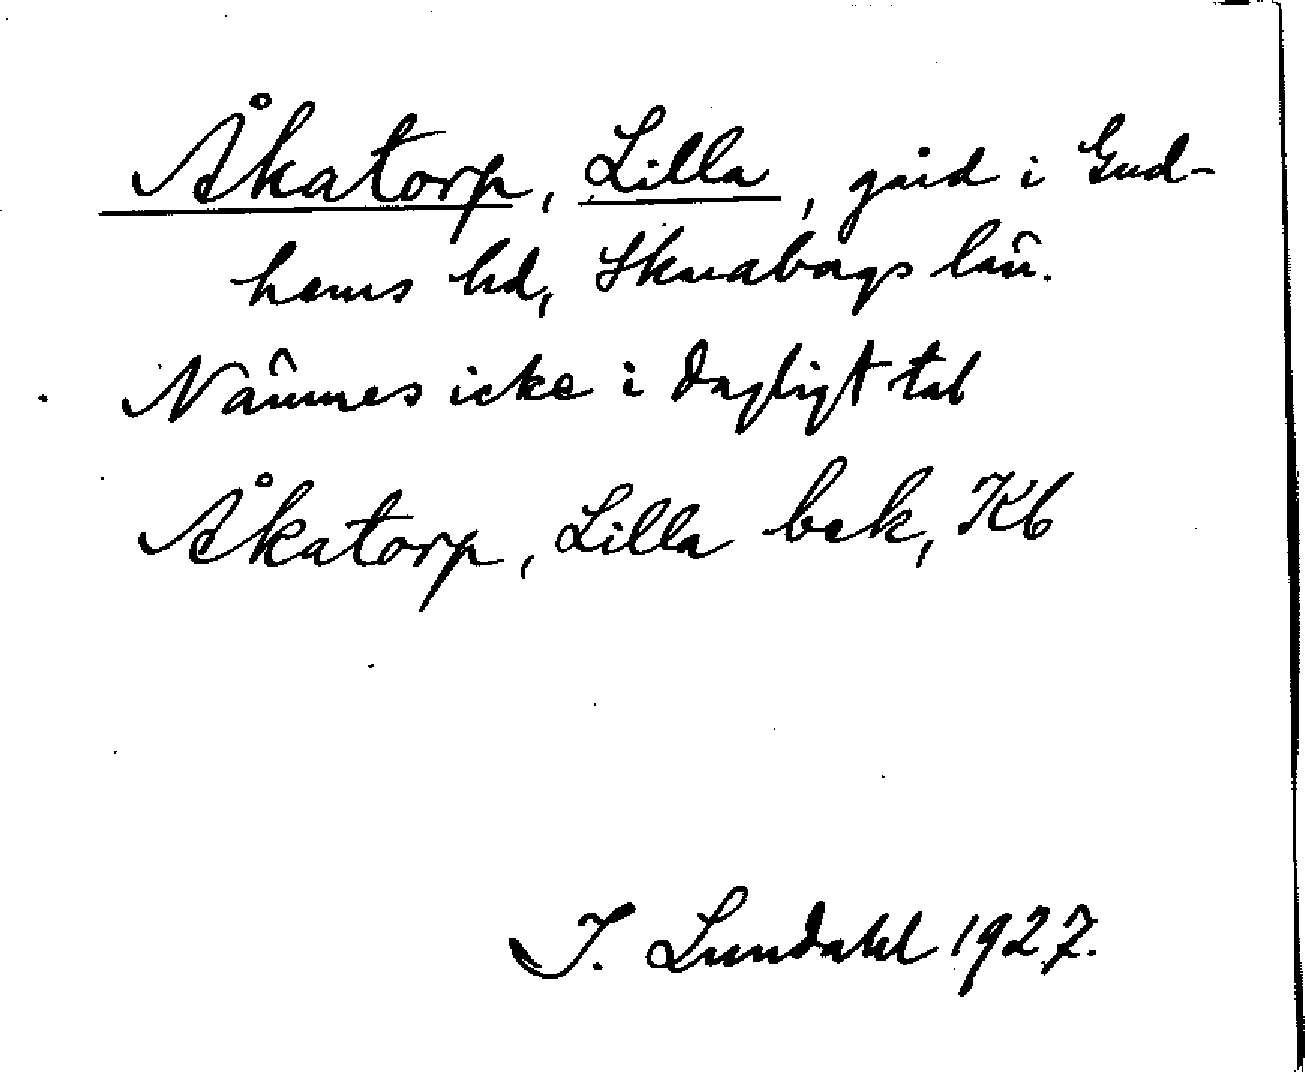 Åkatorp, Lilla, gård i Gud-
hems hd, Skaraborgs län.
Nämnes icke i dagligt tal
Åkatorp, Lilla bek, Kb
I. Lundahl 1927.